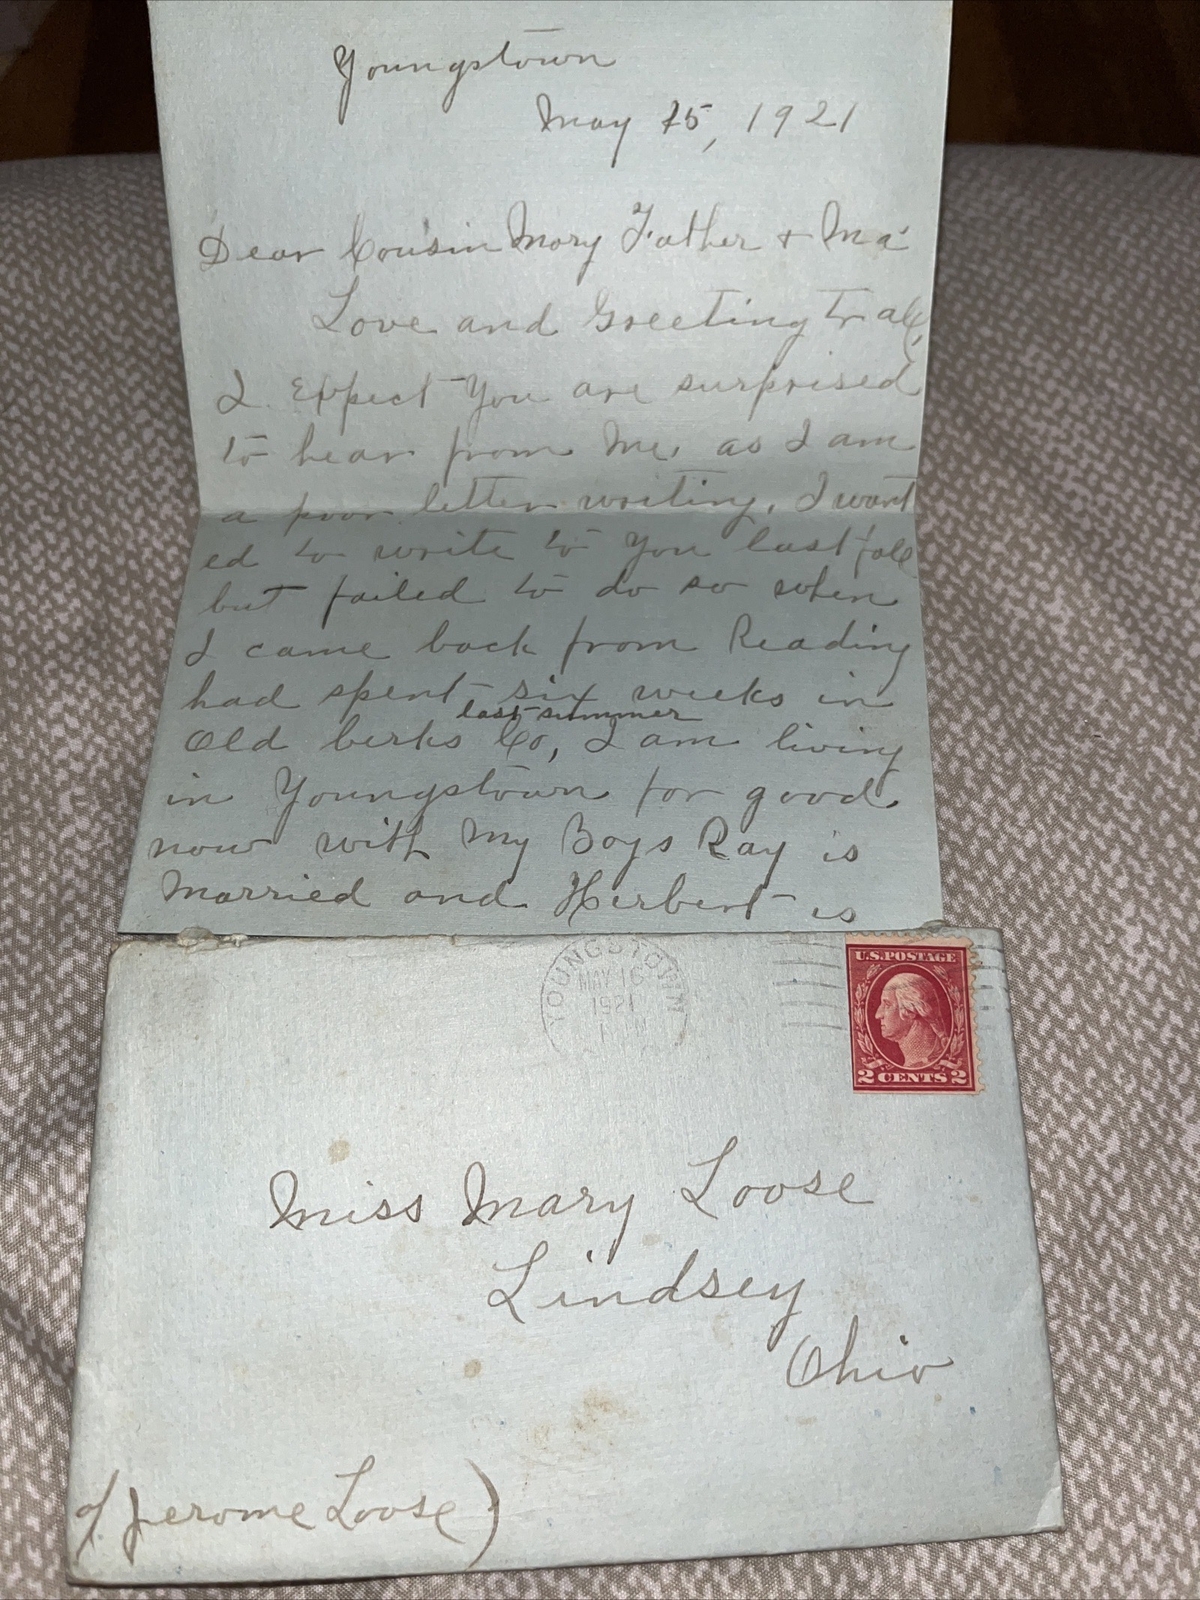 Youngstown
May 15, 1921
Dear Cousin Mary Father + Ma
Love and Greeting to all,
I expect You are surprised
to hear from Me, as I am
a poor letter writing, I want
ed to write to You last fall
but failed to do so when
I came back from Reading
had spent six weeks in
last summer
Old berks Co, I am living
in Youngstown for good
now with My Boys Ray is
Married and Herbert is
YOUNGSTOWN
MAY 16
1921
U.S. POSTAGE
2 CENTS 2
Miss Mary Loose
Lindsey
Ohio
Jerome Loose)